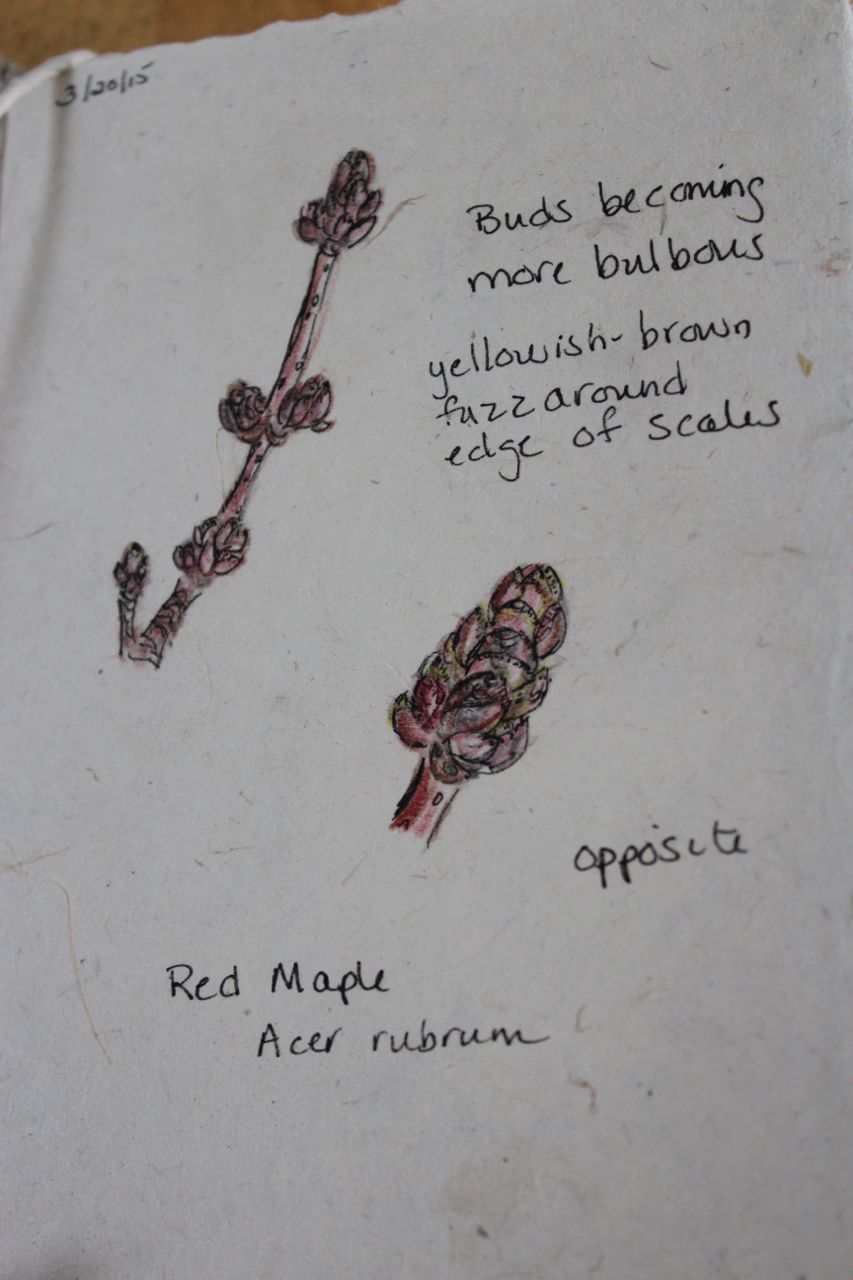 3/20/15
Buds becoming
more bulbous
yellowish-brown
fuzz around
edge of scales
opposite
Red Maple
Acer rubrum